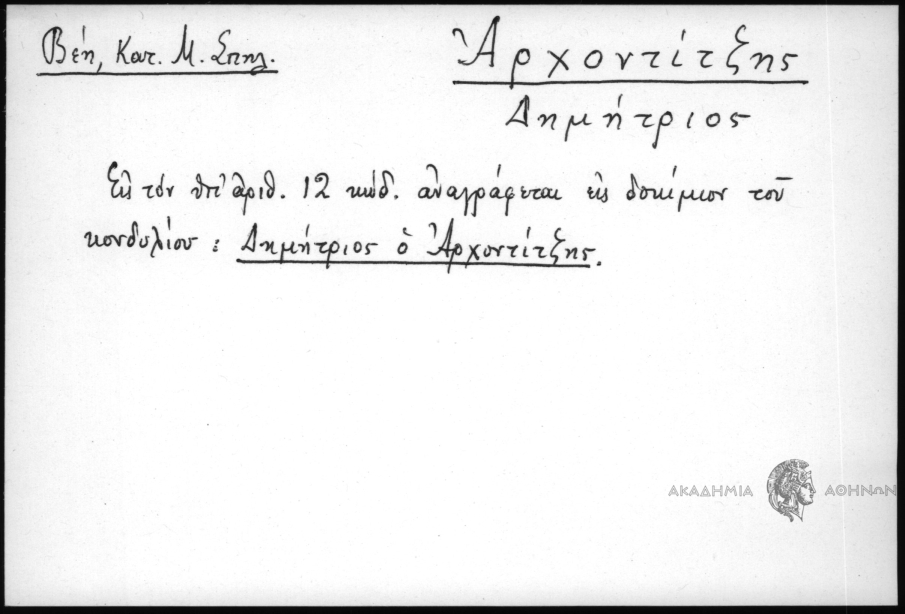 Βέη, Κατ. Μ. Σπηλ.
Ἀρχοντίτζης
Δημήτριος
Εἰς τόν ὑπ' ἀριθ. 12 κώδ. ἀναγράφεται εἰς δοκίμιον τοῦ
κονδυλίου : Δημήτριος ὁ Ἀρχοντίτζης.
ΑΚΑΔΗΜΙΑ ΑΘΗΝΩΝ